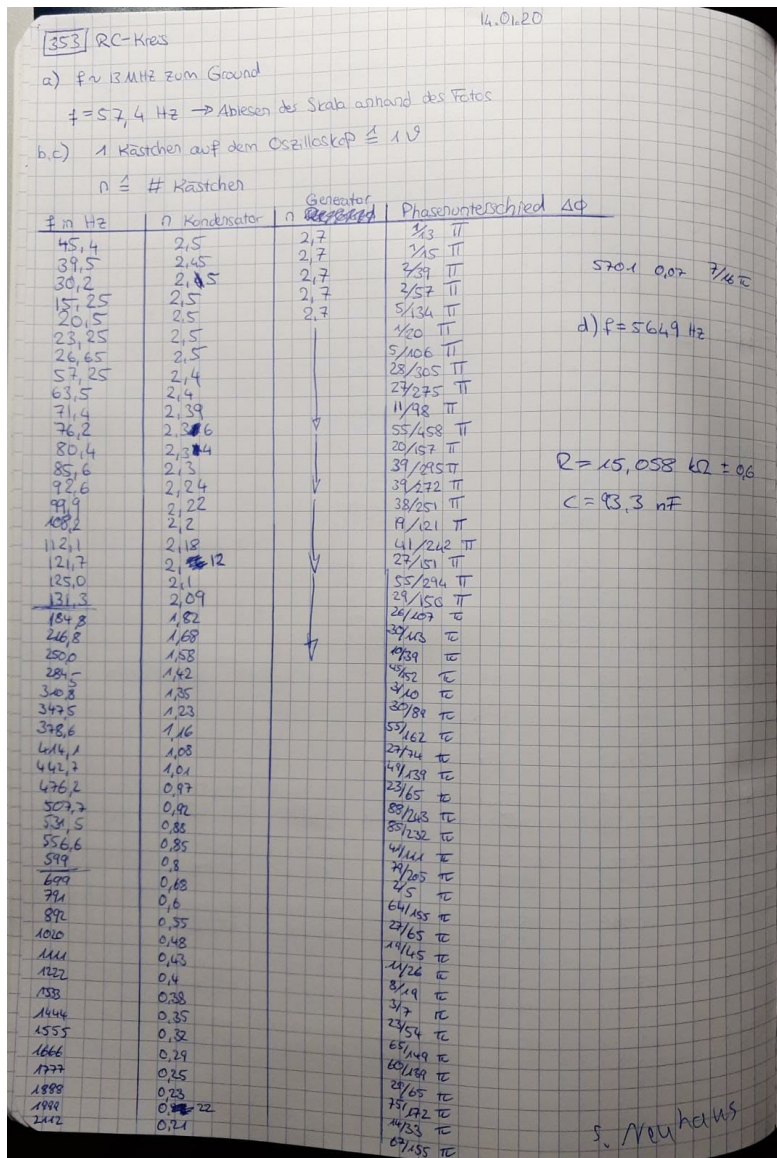 14.01.20
353 RC-Kreis
a) f ~ 13 MHz zum Ground
f = 57,4 Hz → Ablesen der Skala anhand des Fotos
b,c) 1 Kästchen auf dem Oszilloskop ≙ 1 V
n ≙ # Kästchen
f in Hz n Kondensator n Gereator Phasenunterschied Δϕ
45,4 2,5 2,7 1/13 π
39,5 2,45 2,7 1/15 π
30,2 2,5 2,7 2/39 π
15,25 2,5 2,7 2/57 π
20,5 2,5 2,7 5/134 π
23,25 2,5 1/20 π
26,65 2,5 5/106 π
57,25 2,4 28/305 π
63,5 2,4 27/275 π
71,4 2,39 11/98 π
76,2 2,36 55/458 π
80,4 2,34 20/157 π
85,6 2,3 39/295 π
92,6 2,24 39/272 π
99,9 2,22 38/251 π
108,2 2,2 19/121 π
112,1 2,18 41/242 π
121,7 2,12 27/151 π
125,0 2,1 55/294 π
131,3 2,09 29/150 π
184,8 1,82 26/107 π
216,8 1,68 30/113 π
250,0 1,58 10/39 π
284,5 1,42 45/152 π
310,8 1,35 3/10 π
347,5 1,23 30/89 π
378,6 1,16 55/162 π
414,1 1,08 27/74 π
442,7 1,01 49/139 π
476,2 0,97 23/65 π
507,7 0,92 88/243 π
531,5 0,88 85/232 π
556,6 0,85 41/111 π
599 0,8 79/205 π
699 0,68 2/5 π
791 0,6 64/155 π
892 0,55 27/65 π
1020 0,48 19/45 π
1111 0,43 11/26 π
1222 0,4 8/19 π
1333 0,38 3/7 π
1444 0,35 23/54 π
1555 0,32 65/149 π
1666 0,29 60/139 π
1777 0,25 29/65 π
1888 0,23 75/172 π
1999 0,22 14/33 π
2112 0,21 67/155 π
5701 0,07 7/16 π
d) f = 5649 Hz
R = 15,058 kΩ ± 0,6
C = 93,3 nF
S. Neuhaus